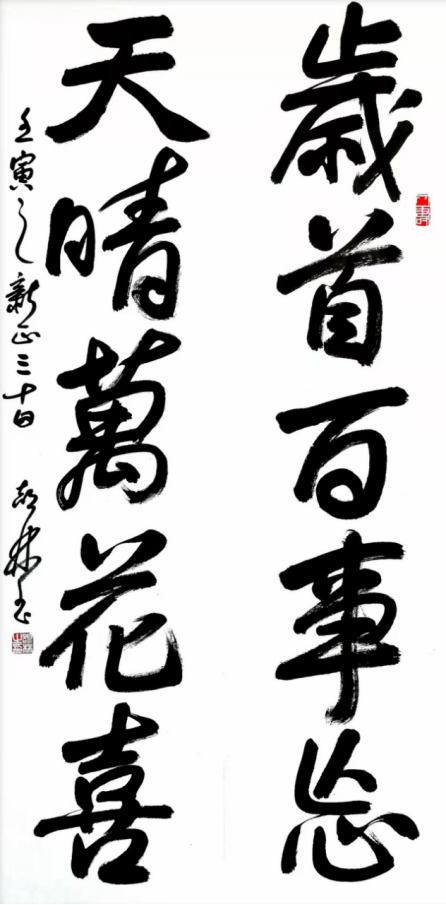 歲首百事忘
天晴萬花喜
壬寅之新正三十日